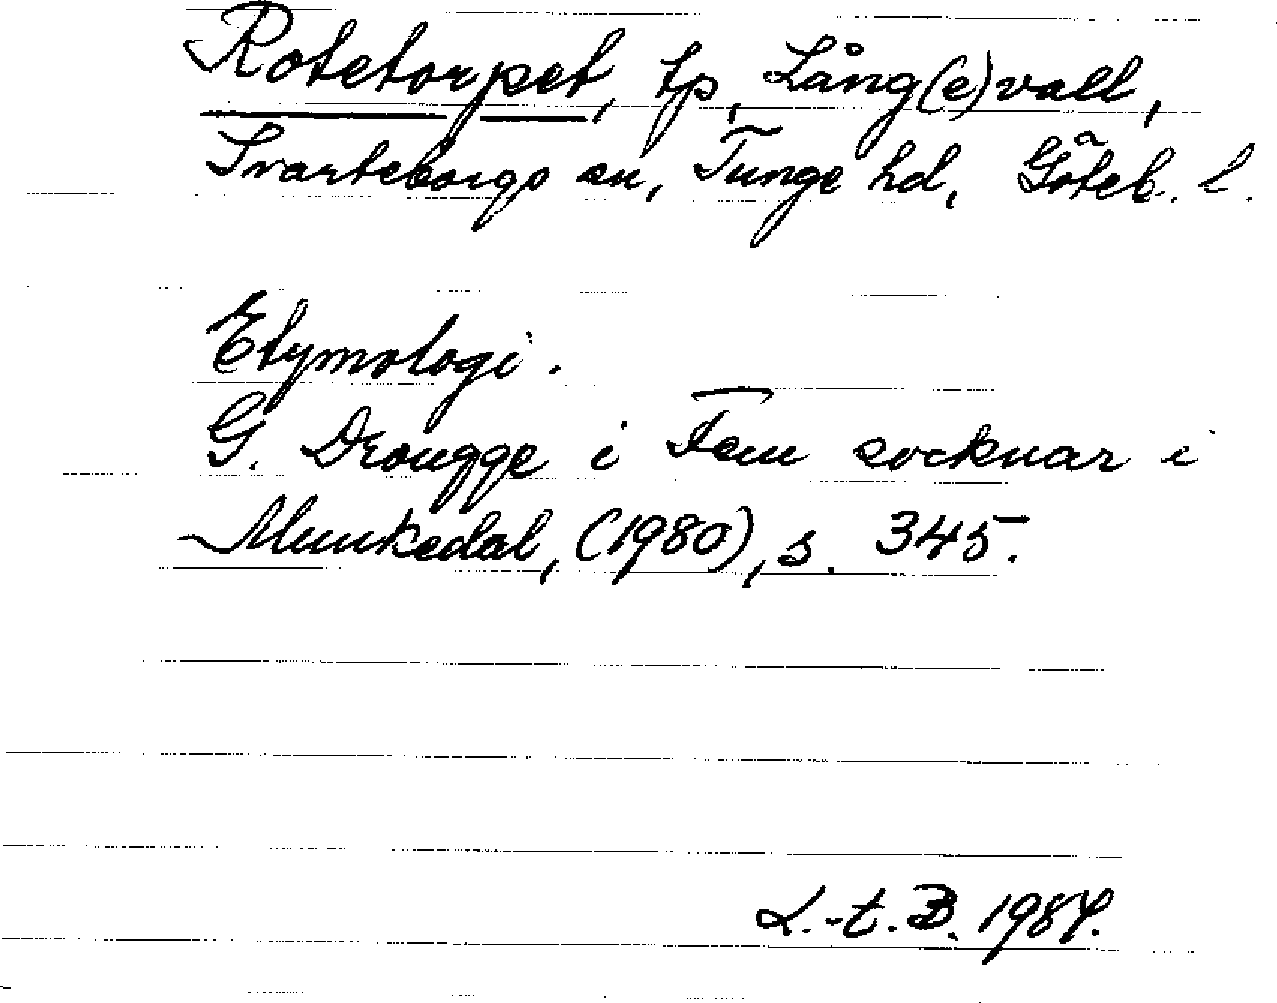 Rotetorpet, tp, Lång(e)vall,
Svarteborgs sn, Tunge hd, Göteb. l.
Etymologi.
G. Drougge i Fem socknar i
Munkedal, (1980), s. 345.
L.-t. B. 1984.